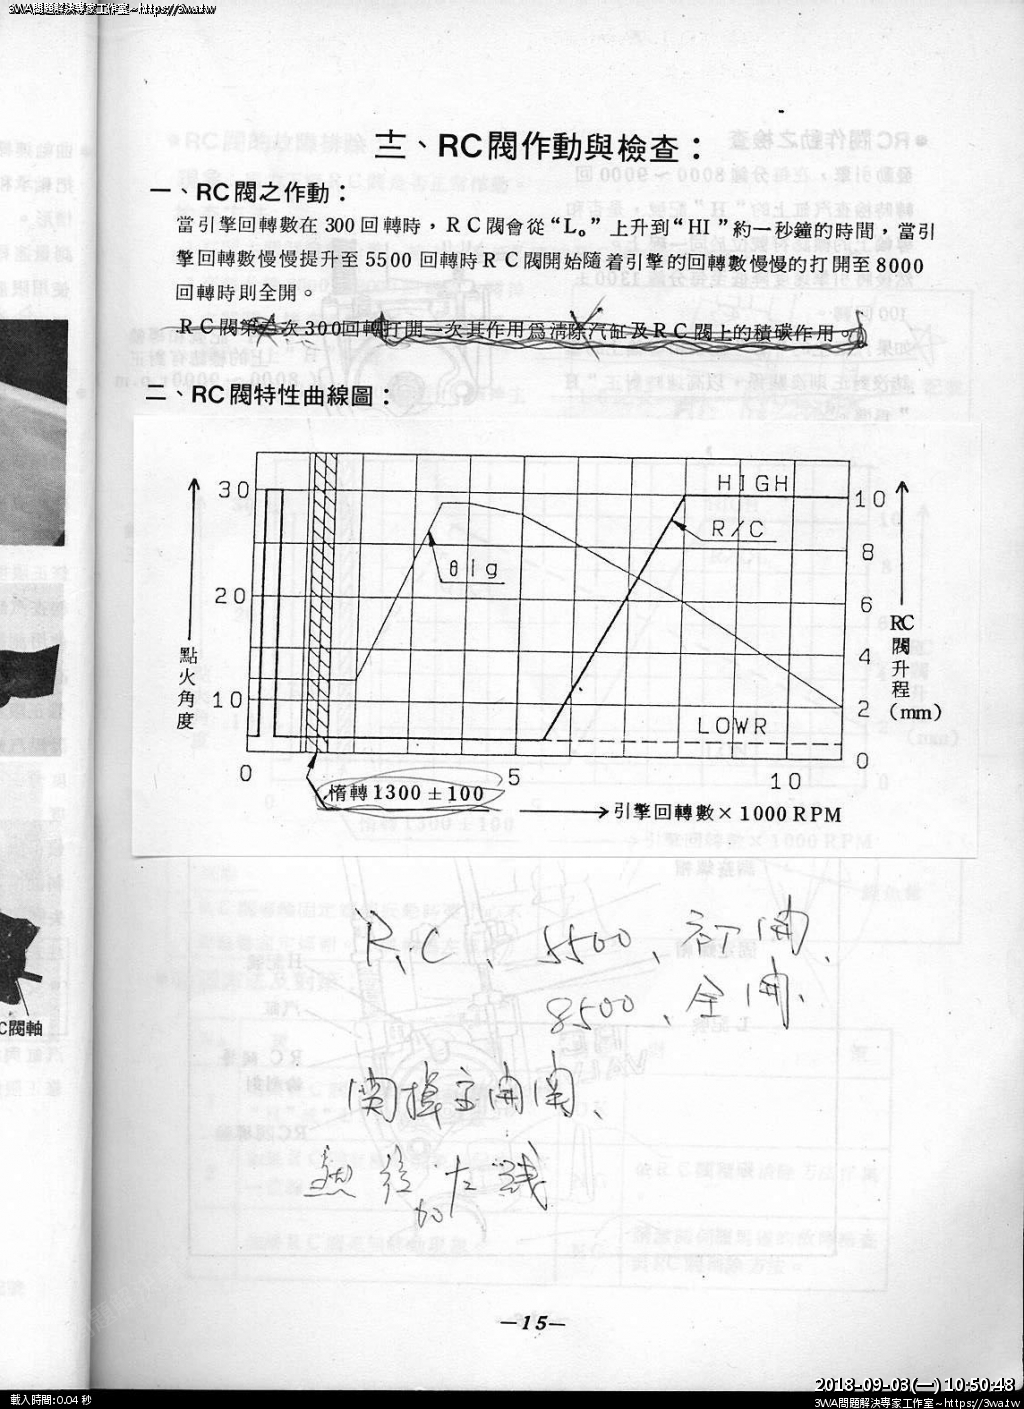 3WA問題解決專家工作室~https://3wa.tw
十三、RC閥作動與檢查：
一、RC閥之作動：
當引擎回轉數在300回轉時，RC閥會從“L。”上升到“HI”約一秒鐘的時間，當引
擎回轉數慢慢提升至5500回轉時RC閥開始隨着引擎的回轉數慢慢的打開至8000
回轉時則全開。
次300回轉打開一次其作用爲清除汽缸及RC閥上的積碳作用。
二、RC閥特性曲線圖：
HIGH
R/C
θIg
LOWR
30
20
10
點火角度
10
8
6
4
2
0
RC閥升程(mm)
0
5
10
惰轉1300±100
引擎回轉數×1000RPM
R、C、5500、初開、
8500、全開、
關掉主開關、
C閥軸
—15—
載入時間:0.04 秒
2018-09-03(一) 10:50:48
3WA問題解決專家工作室~https://3wa.tw